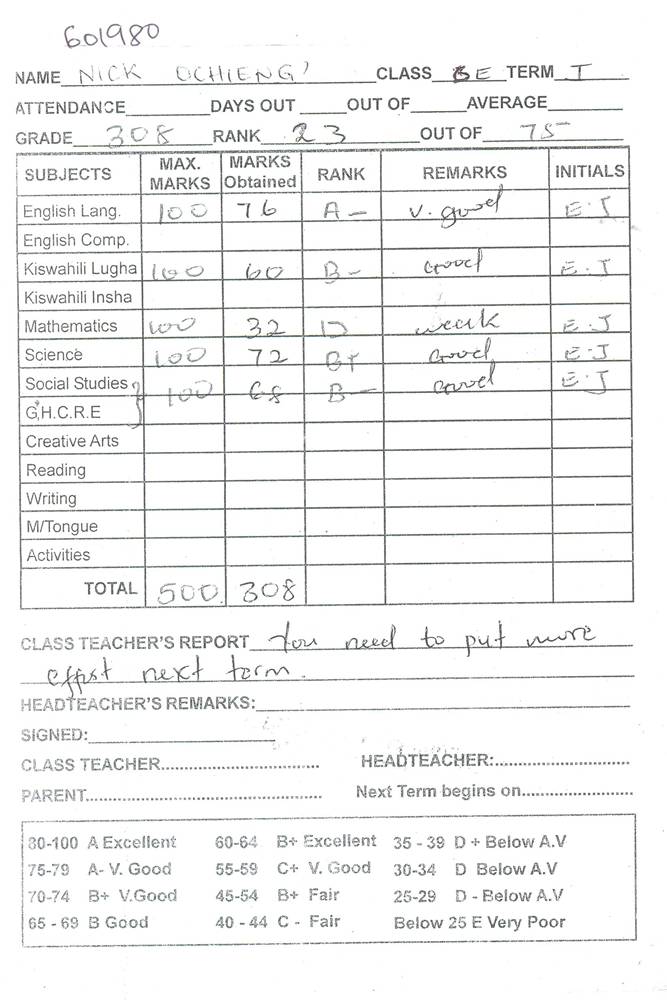 601980
NAME NICK OCHIENG' CLASS 5E TERM I
ATTENDANCE DAYS OUT OUT OF AVERAGE
GRADE 308 RANK 23 OUT OF 75
SUBJECTS MAX. MARKS MARKS Obtained RANK REMARKS INITIALS
English Lang. 100 76 A- v. good E.J
English Comp.
Kiswahili Lugha 100 60 B- Good E.J
Kiswahili Insha
Mathematics 100 32 D weak E.J
Science 100 72 B+ Good E.J
Social Studies 100 68 B- Good E.J
G,H.C.R.E
Creative Arts
Reading
Writing
M/Tongue
Activities
TOTAL 500 308
CLASS TEACHER'S REPORT You need to put more
effort next term.
HEADTEACHER'S REMARKS:
SIGNED:
CLASS TEACHER HEADTEACHER:
PARENT Next Term begins on
80-100 A Excellent 60-64 B+ Excellent 35 - 39 D + Below A.V
75-79 A- V. Good 55-59 C+ V. Good 30-34 D Below A.V
70-74 B+ V.Good 45-54 B+ Fair 25-29 D - Below A.V
65 - 69 B Good 40 - 44 C - Fair Below 25 E Very Poor